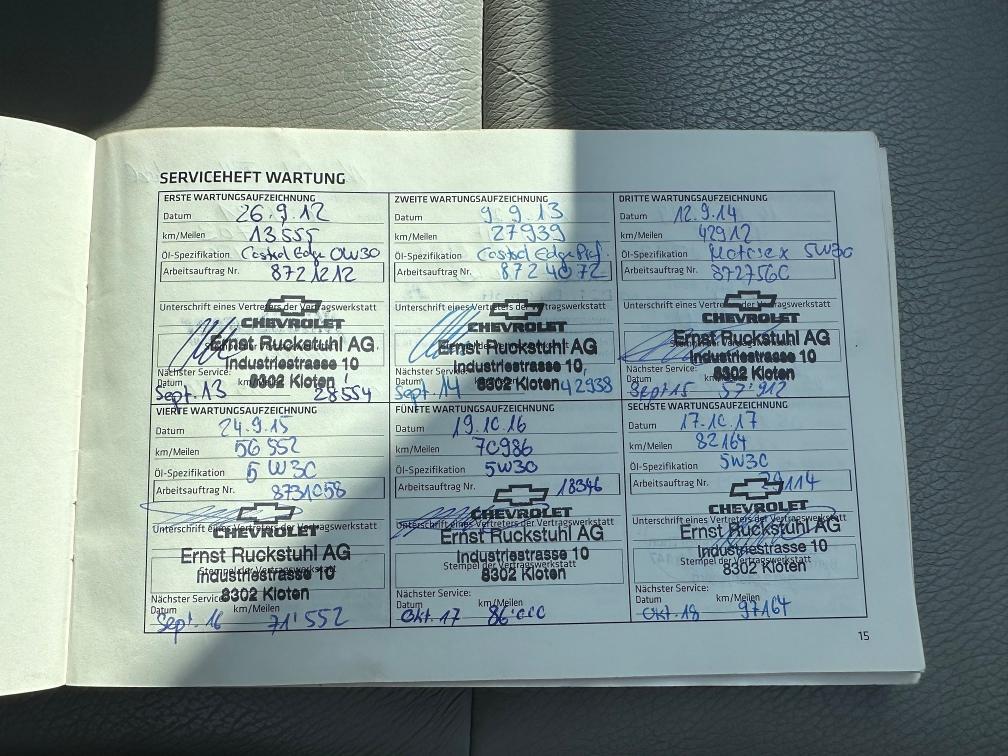 SERVICEHEFT WARTUNG
ERSTE WARTUNGSAUFZEICHNUNG
Datum 26.9.12
km/Meilen 13555
Öl-Spezifikation Castrol Edge 0W30
Arbeitsauftrag Nr. 8721212
Unterschrift eines Vertreters der Vertragswerkstatt
CHEVROLET
Ernst Ruckstuhl AG
Industriestrasse 10
8302 Kloten
Nächster Service:
Datum km/Meilen
Sept. 13 28554
ZWEITE WARTUNGSAUFZEICHNUNG
Datum 9.9.13
km/Meilen 27939
Öl-Spezifikation Castrol Edge Prof.
Arbeitsauftrag Nr. 8724072
Unterschrift eines Vertreters der Vertragswerkstatt
CHEVROLET
Ernst Ruckstuhl AG
Industriestrasse 10,
8302 Kloten
Nächster Service:
Datum
Sept. 14 42938
DRITTE WARTUNGSAUFZEICHNUNG
Datum 12.9.14
km/Meilen 42912
Öl-Spezifikation Motorex 5W30
Arbeitsauftrag Nr. 8727560
Unterschrift eines Vertreters der Vertragswerkstatt
CHEVROLET
Ernst Ruckstuhl AG
Industriestrasse 10
8302 Kloten
Nächster Service:
Datum km/Meilen
Sept 15 57'912
VIERTE WARTUNGSAUFZEICHNUNG
Datum 24.9.15
km/Meilen 56552
Öl-Spezifikation 5W30
Arbeitsauftrag Nr. 8731058
Unterschrift eines Vertreters der Vertragswerkstatt
CHEVROLET
Ernst Ruckstuhl AG
Stempel der Vertragswerkstatt
Industriestrasse 10
8302 Kloten
Nächster Service:
Datum km/Meilen
Sept. 16 71'552
FÜNFTE WARTUNGSAUFZEICHNUNG
Datum 19.10.16
km/Meilen 70986
Öl-Spezifikation 5W30
Arbeitsauftrag Nr. 18346
Unterschrift eines Vertreters der Vertragswerkstatt
CHEVROLET
Ernst Ruckstuhl AG
Industriestrasse 10
Stempel der Vertragswerkstatt
8302 Kloten
Nächster Service:
Datum km/Meilen
Okt. 17 86'000
SECHSTE WARTUNGSAUFZEICHNUNG
Datum 17.10.17
km/Meilen 82164
Öl-Spezifikation 5W30
Arbeitsauftrag Nr.
Unterschrift eines Vertreters der Vertragswerkstatt
CHEVROLET
Ernst Ruckstuhl AG
Industriestrasse 10
Stempel der Vertragswerkstatt
8302 Kloten
Nächster Service:
Datum km/Meilen
Okt. 18 97164
15